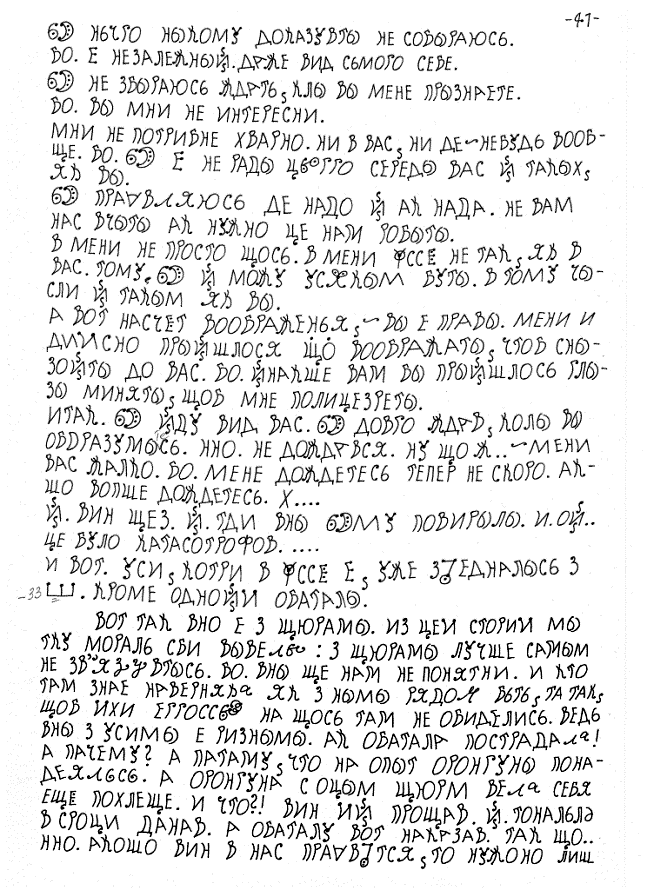 -41-
НЫЧРО НЫКОМУ ДОКАЗУВТЫ НЕ СОБЫРАЮСЬ.
ВО. Е НЕЗАЛЕЖНЫЙ. ДАЖЕ ВИД СЬМОГО СЕБЕ.
НЕ ЗБЫРАЮСЬ ЖДАТЬ, КЛЫ ВЫ МЕНЕ ПРЫЗНАЕТЕ.
ВО. ВЫ МНИ НЕ ИНТЕРЕСНИ.
МНИ НЕ ПОТРИБНЕ ХВАРНО. НИ В ВАС, НИ ДЕ-НЕБУДЬ ВООБ-
ЩЕ. ВО. Е НЕ РАДЫ СЕРЕДЫ ВАС Й ТАКЫХ,
ЯК ВЫ.
ПРАВЛЯЮСЬ ДЕ НАДО Й АК НАДА. НЕ ВАМ
НАС ВЧЫТЫ АК НУЖНО ЦЕ НАМ РОБЫТЫ.
В МЕНИ НЕ ПРОСТО ЩОСЬ. В МЕНИ УССЕ НЕ ТАК, ЯК В
ВАС. ТОМУ. Й МОЖУ УСЯКЫМ БУТЫ. В ТОМУ ЧЫ-
СЛИ Й ТАКЫМ ЯК ВЫ.
А ВОТ НАСЧЕТ ВООБРАЖЕНЬЯ, - ВЫ Е ПРАВЫ. МЕНИ И
ДИЙСНО ПРЫЙШЛОСЯ ЩО ВООБРАЖАТЫ, ЧТОБ СНЫ-
ЗОЙТЫ ДО ВАС. ВО. ЙНАКШЕ ВАМ БЫ ПРЫЙШЛОСЬ ГЛЫ-
ЗЫ МИНЯТЫ, ЩОБ МНЕ ПОЛИЦЕЗРЕТЫ.
ИТАК. ЙДУ ВИД ВАС. ДОБРО ЖДАВ, КОЛЫ ВЫ
ОБДРАЗУМЫСЬ. ННО. НЕ ДОЖДАВСЯ. НУ ЩО Ж.. - МЕНИ
ВАС ЖАЛКО. ВО. МЕНЕ ДОЖДЕТЕСЬ ТЕПЕР НЕ СКОРО. АК-
ЩО ВОПШЕ ДОЖДЕТЕСЬ. Х....
Й. ВИН ЩЕЗ. Й. ТДИ ВНЫ ПОВИРЫЛЫ. И. ОЙ..
ЦЕ БУЛО КАТАСОТРОФОВ. ....
И ВОТ. УСИ, КОТРИ В УССЕ Е, УЖЕ ЗЄДНАЛЫСЬ З
-33 Ш. КРОМЕ ОДНОЙИ ОБАТАЛЫ.
ВОТ ТАК ВНО Е З ЩЮРАМЫ. ИЗ ЦЕИ СТОРИИ МЫ
ТКУ МОРАЛЬ СБИ ВЫВЕЛЫ: З ЩЮРАМЫ ЛУЧШЕ САМЫМ
НЕ ЗВ'ЯЗУВТЫСЬ. ВО. ВНЫ ЩЕ НАМ НЕ ПОНЯТНИ. И КТО
ТАМ ЗНАЕ НАВЕРНЯКА ЯК З НЫМЫ РЯДОМ БЫТЬ, ТА ТАК,
ЩОБ ИХИ НА ЩОСЬ ТАМ НЕ ОБИДЕЛИСЬ. ВЕДЬ
ВНЫ З УСИМЫ Е РИЗНЫМЫ. АК ОБАТАЛА ПОСТРАДАЛА!
А ПАЧЕМУ? А ПАТАМУ, ЧТО НА ОПЫТ ОРОНГУНЫ ПОНА-
ДЕЯЛЬСЬ. А ОРОНГУНА С ОЦЫМ ЩЮРМ ВЕЛА СЕБЯ
ЕЩЕ ПОХЛЕЩЕ. И ЧТО?! ВИН ИЙ ПРОЩАВ. Й. ТОНАЛЬЛЫ
В СРОЦИ ДАНАВ. А ОБАТАЛУ ВОТ НАКАЗАВ. ТАК ЩО..
ННО. АКОШО ВИН В НАС ПРАВЙТСЯ, ТО НУЖОНО ЛИШ